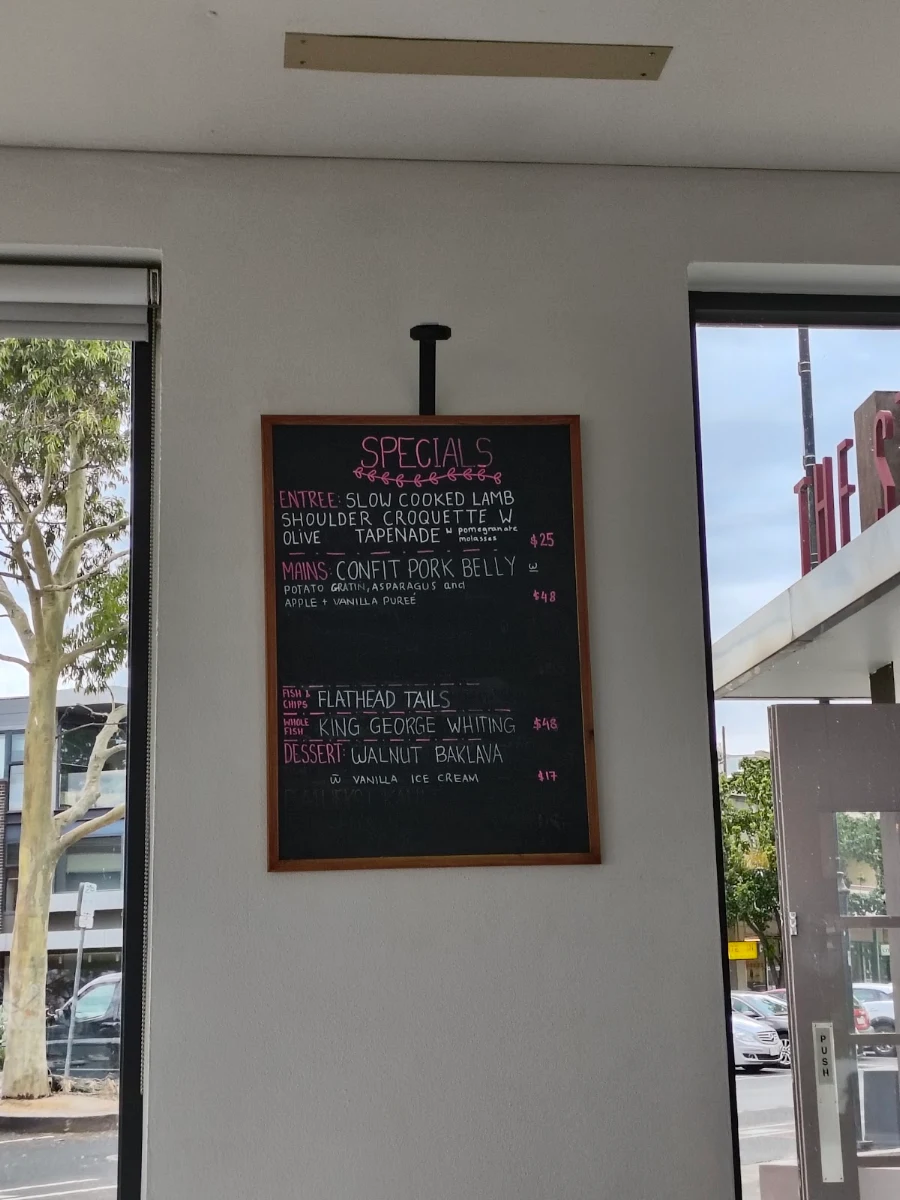 SPECIALS
ENTREE: SLOW COOKED LAMB
SHOULDER CROQUETTE W
OLIVE TAPENADE W pomegranate
molasses
$25
MAINS: CONFIT PORK BELLY W
POTATO GRATIN, ASPARAGUS and
APPLE + VANILLA PUREÉ
$48
FISH &
CHIPS FLATHEAD TAILS
WHOLE
FISH KING GEORGE WHITING $48
DESSERT: WALNUT BAKLAVA
W VANILLA ICE CREAM $17
THE S
PUSH